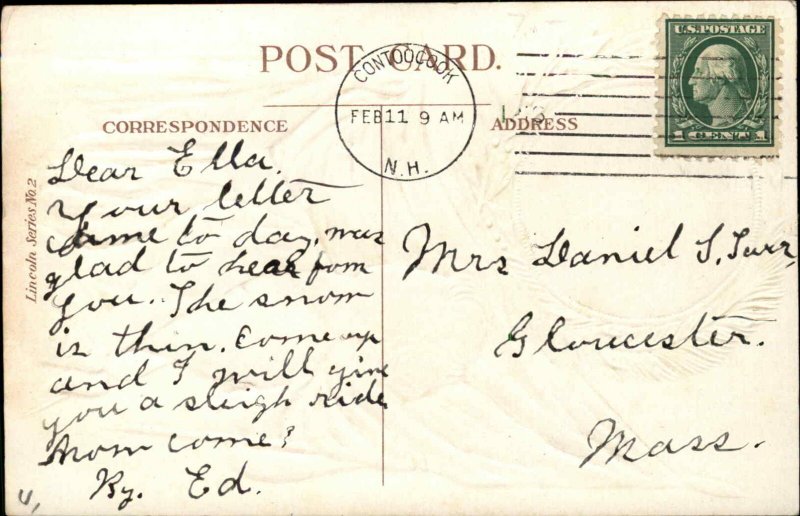 POST CARD.
CONTOOCOOK
FEB 11 9 AM
N.H.
U.S. POSTAGE
1 CENT 1
CORRESPONDENCE
ADDRESS
Lincoln Series No. 2
Dear Ella.
Your letter
came to day, was
glad to hear from
you. The snow
is thin. Come up
and I will give
you a sleigh ride
Now come?
By. Ed.
Mrs Daniel S.
Gloucester.
Mass.